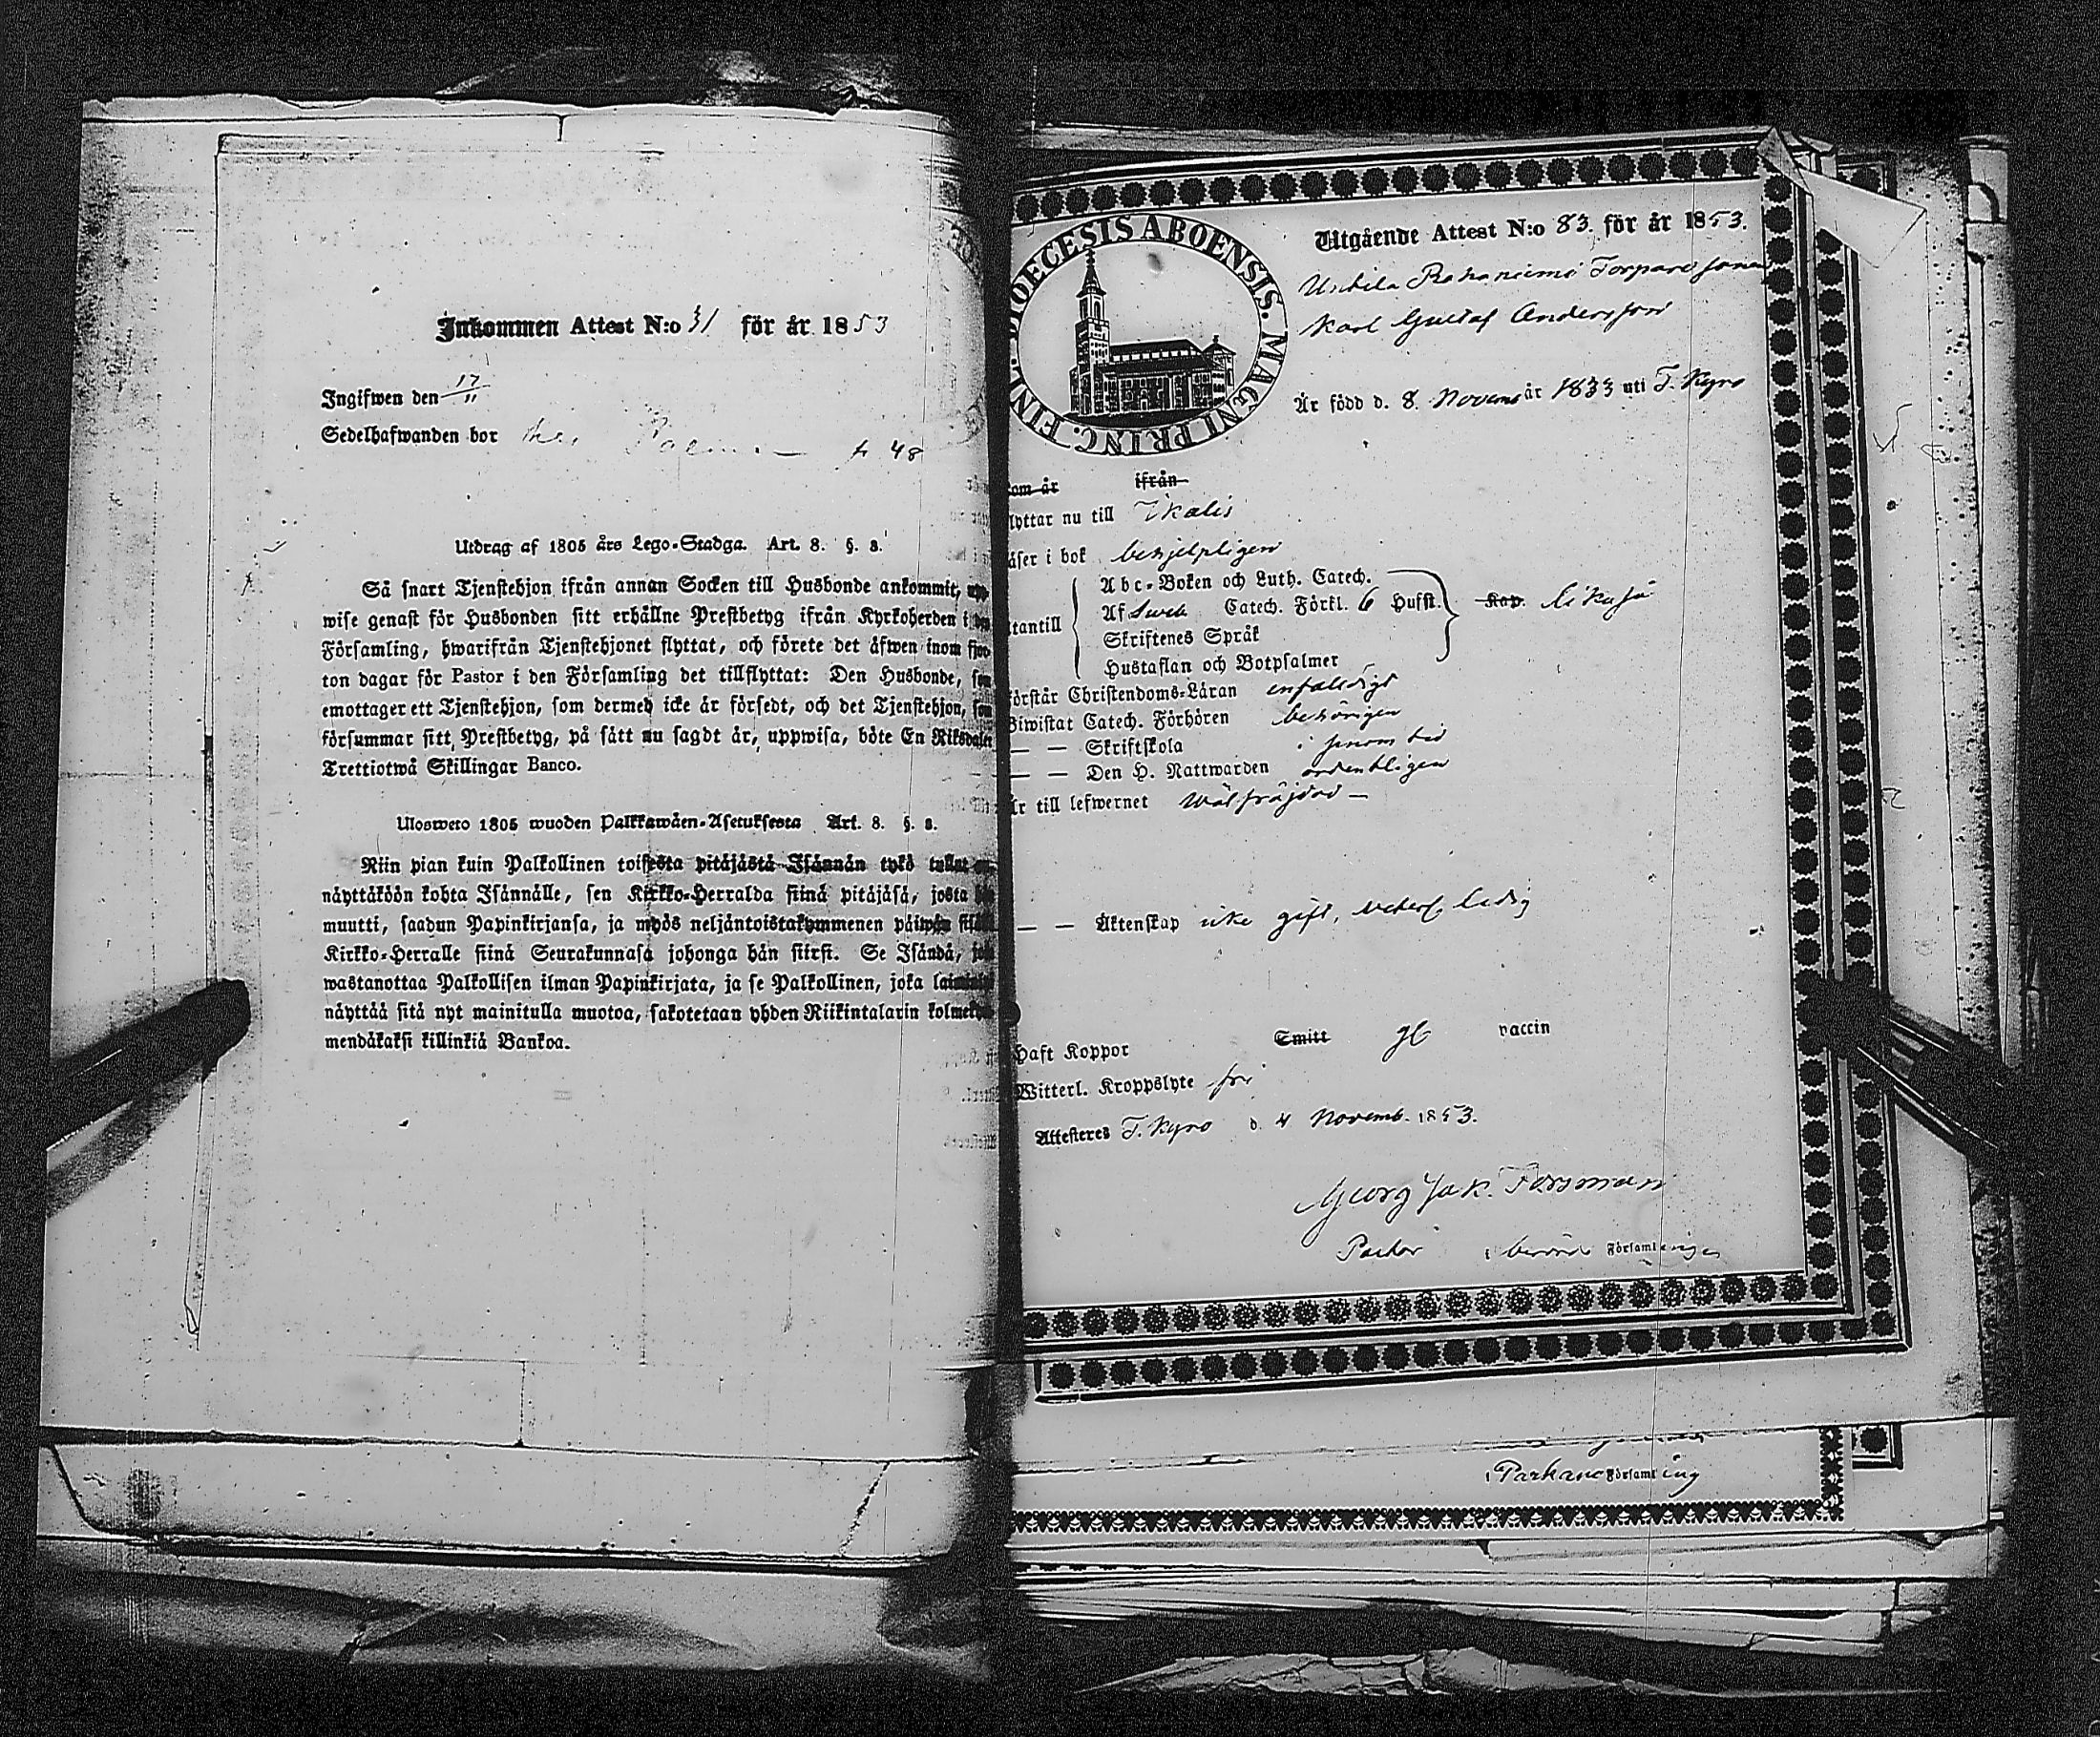 Inkommen Attest N:o 31 för år 1853
Ingifwen den 17/11
Sedelhafwanden bor
48
Utdrag af 1805 års Lego-Stadga. Art. 8. §. 8.
Så snart Tjenstehjon ifrån annan Socken till Husbonde ankommit, upp-
wise genast för Husbonden sitt erhållne Prestbetyg ifrån Kyrkoherden i
Församling, hwarifrån Tjenstehjonet flyttat, och förete det äfwen inom fjor-
ton dagar för Pastor i den Församling det tillflyttat: Den Husbonde, som
emottager ett Tjenstehjon, som dermed icke är försedt, och det Tjenstehjon, som
försummar sitt Prestbetyg, på sätt nu sagdt är, uppwisa, böte En Riksdaler
Trettiotwå Skillingar Banco.
Ulosweto 1805 wuoden Palkkawäen-Asetuksesta Art. 8. §. 8.
Niin pian kuin Palkollinen toisesta pitäjästä Isännän tykö tullut
näyttäköön kohta Isännälle, sen Kirkko-Herralda siinä pitäjäsä, josta
muutti, saadun Papinkirjansa, ja myös neljäntoistakymmenen päiwän
Kirkko-Herralle siinä Seurakunnasa johonga hän siirsi. Se Isändä, joka
wastanottaa Palkollisen ilman Papinkirjata, ja se Palkollinen, joka
näyttää sitä nyt mainitulla muotoa, sakotetaan yhden Riikintalarin kolmekym-
mendäkaksi killinkiä Bankoa.
DIOECESIS ABOENSIS. MAGNI PRINC. FINL.
Utgående Attest N:o 83. för år 1853.
Torpare sonen
Karl Gustaf Andersson
Är född d. 8. Novemb år 1833 uti T. Kyro
om år ifrån
lyttar nu till Ikalis
äser i bok behjelpligen
Abc-Boken och Luth. Catech.
tantill Af Sweb Catech. Förkl. 6 Hufst. Kap. likaså
Skriftenes Språk
Hustaflan och Botpsalmer
örstår Christendoms-Läran enfaldigt
Biwistat Catech. Förhören behörigen
— — Skriftskola i sinom tid
— — Den H. Nattwarden ordentligen
är till lefwernet wälfräjdad —
— — Äktenskap icke gift, ledig
Haft Koppor Smitt vaccin
Witterl. Kroppslyte fri
Attesteres T. Kyro d. 4 Novemb. 1853.
Georg Jak. Forsman
Pastor i berörde Församlingen
i Parkano Församling